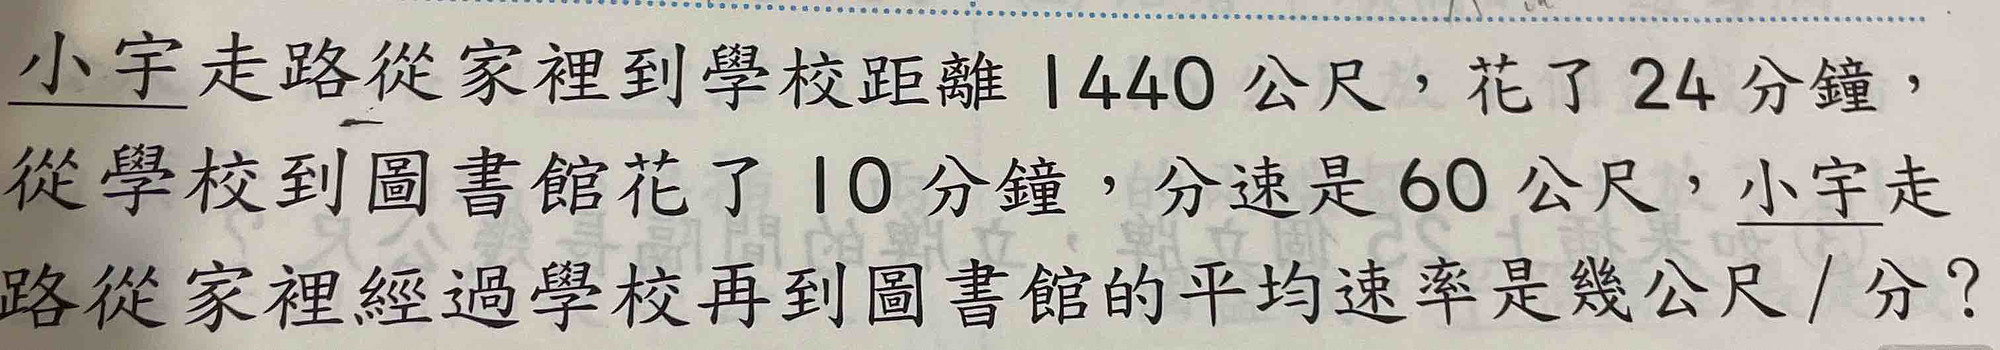 小宇走路從家裡到學校距離 1440 公尺，花了 24 分鐘，
從學校到圖書館花了 10 分鐘，分速是 60 公尺，小宇走
路從家裡經過學校再到圖書館的平均速率是幾公尺 / 分？